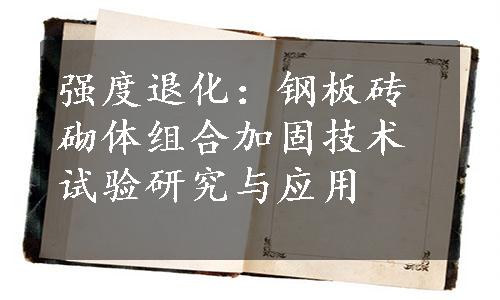 强度退化：钢板砖
砌体组合加固技术
试验研究与应用